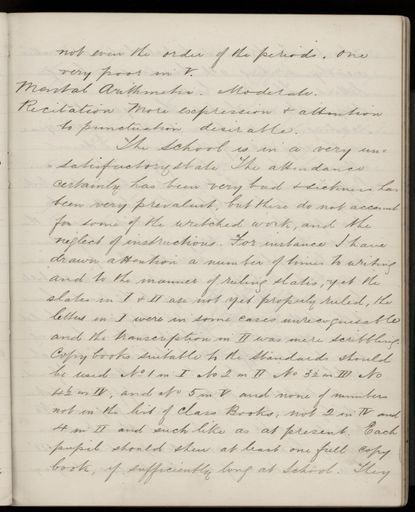 not even the order of the periods. One
very poor in V.
Mental Arithmetic. Moderate.
Recitation More expression & attention
to punctuation desirable.
The School is in a very un=
satisfactory state. The attendance
certainly has been very bad & sickness has
been very prevalent, but these do not account
for some of the wretched work, and the
neglect of instructions. For instance I have
drawn attention a number of times to writing
and to the manner of ruling slates, yet the
slates in I & II are not yet properly ruled, the
letters in I were in some cases unrecognisable
and the transcription in II was mere scribbling.
Copy books suitable to the Standards should
be used No 1 in I No 2 in II No 3½ in III No
4½ in IV, and No 5 in V and none of numbers
not in the list of Class Books, not 2 in IV and
4 in II and such like as at present. Each
pupil should shew at least one full copy
book, if sufficiently long at School. They